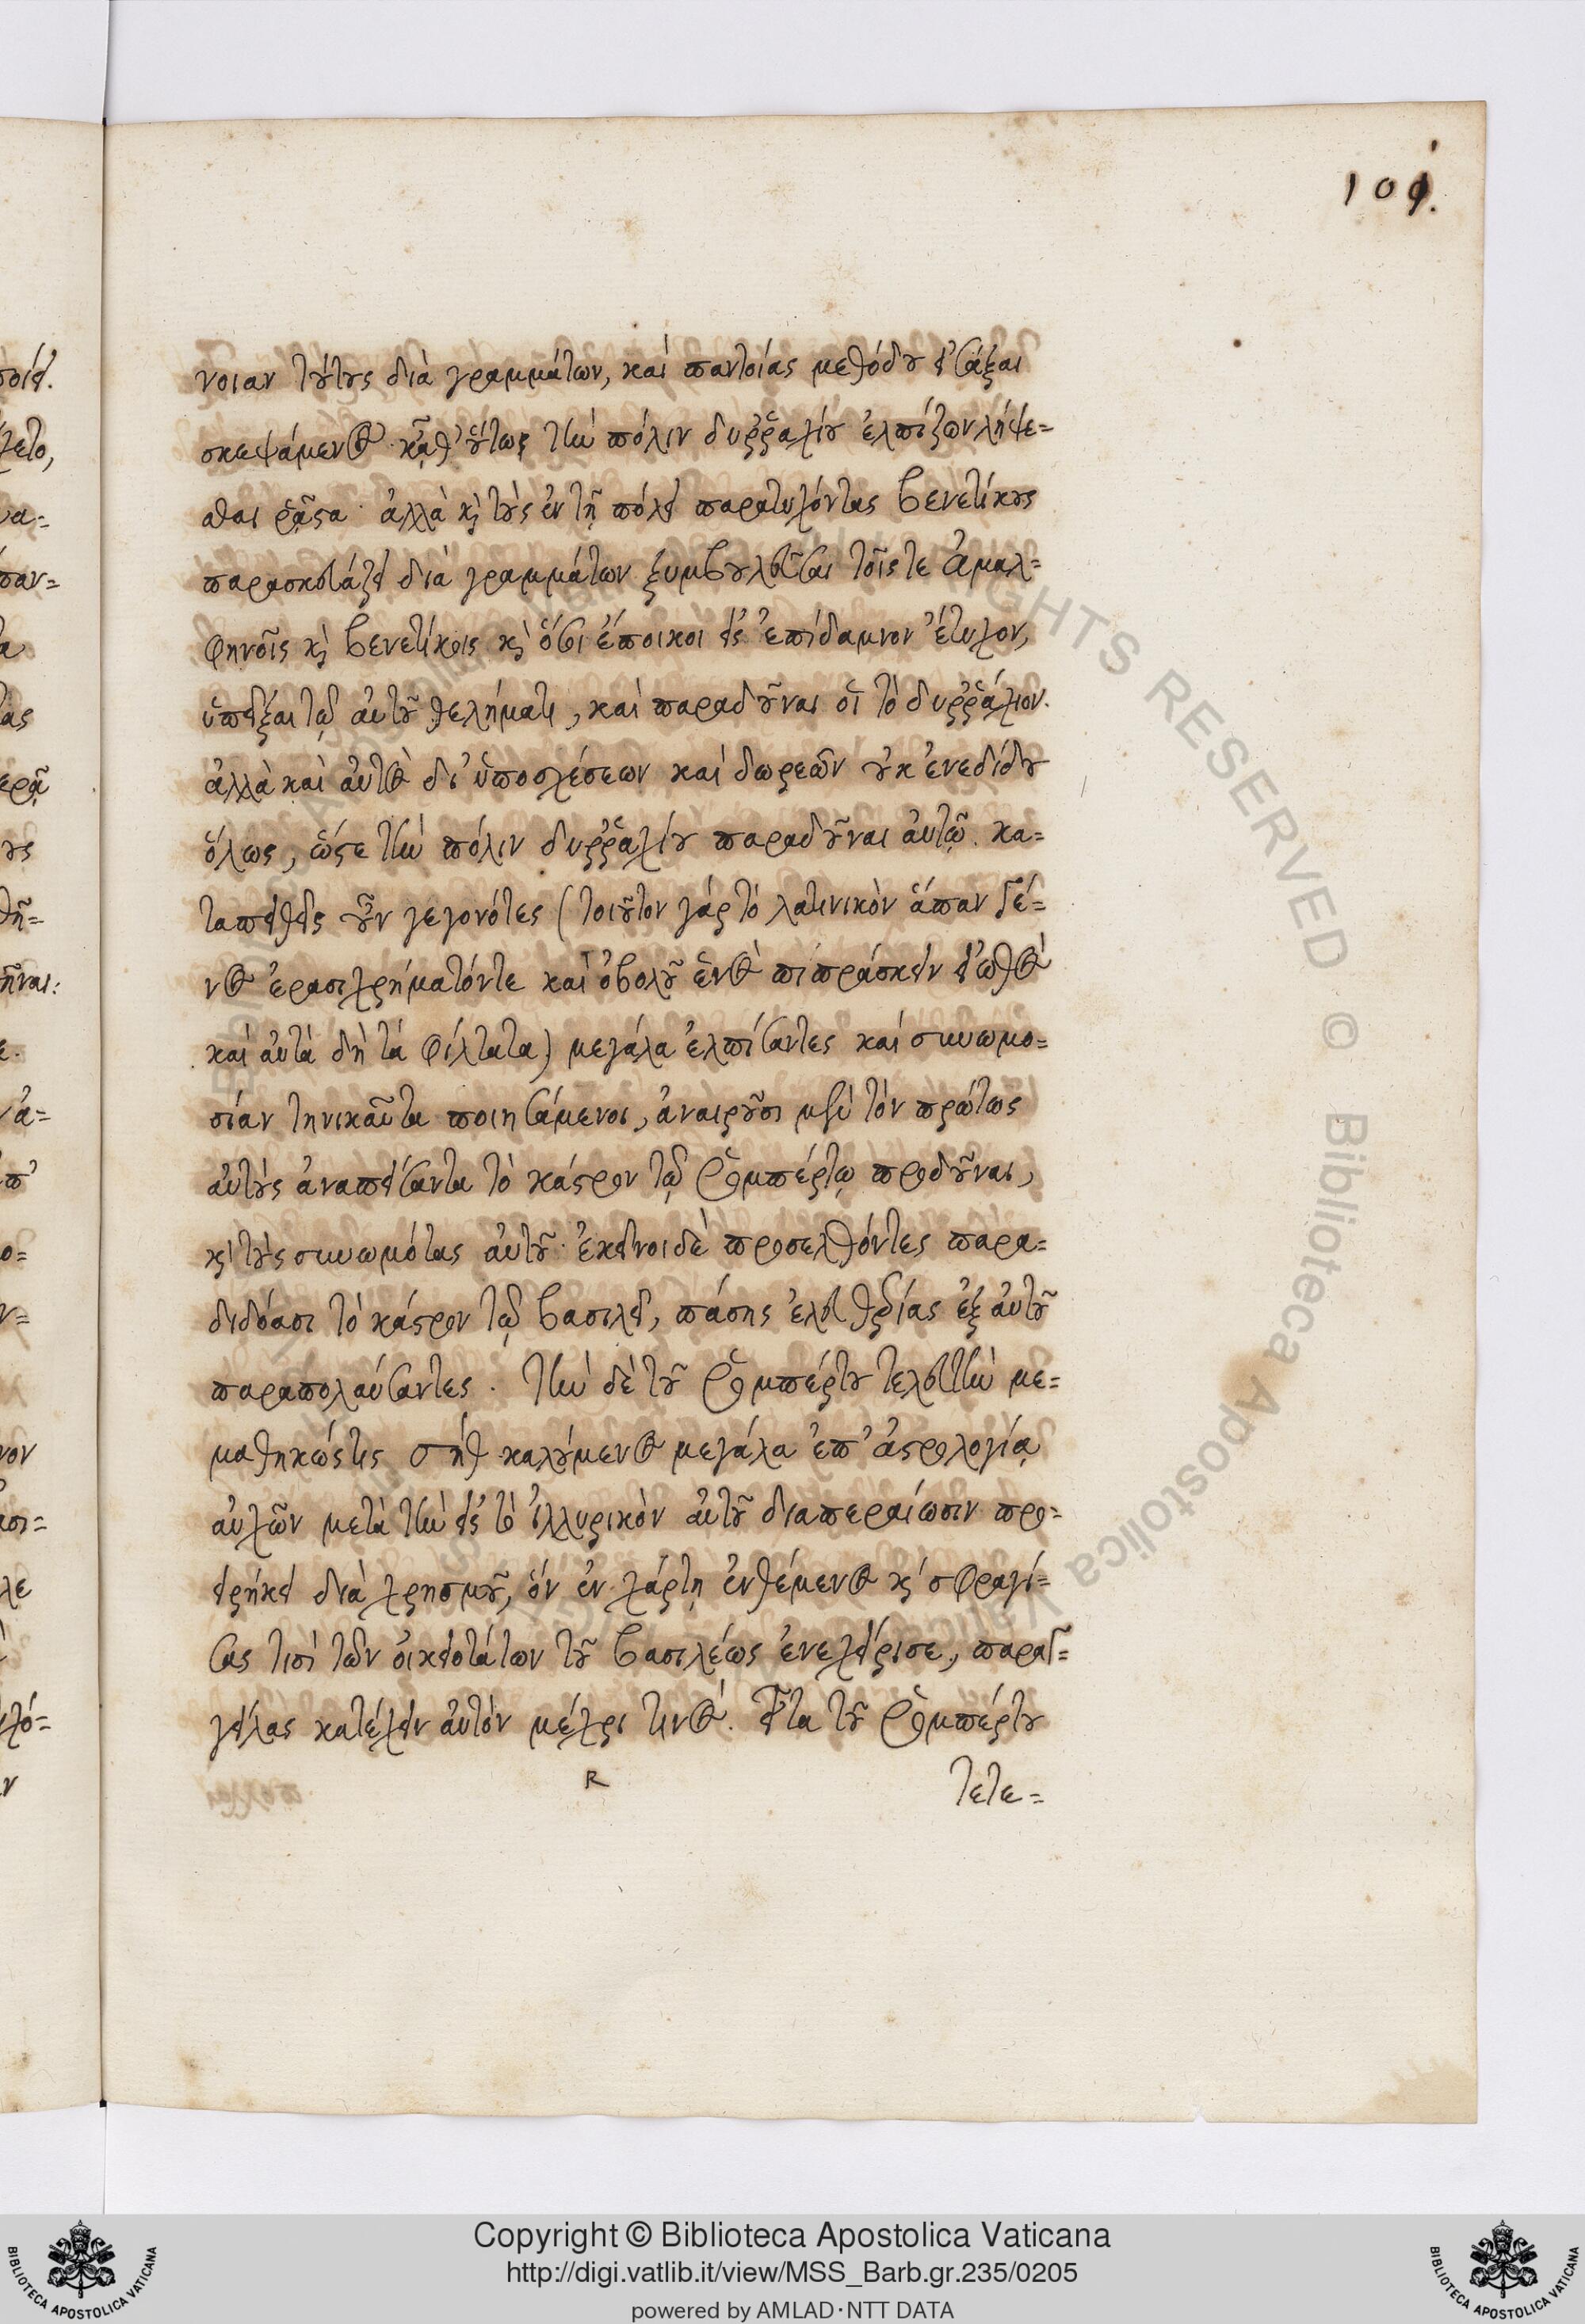 101.
νοιαν τούτους διὰ γραμμάτων, καὶ παντοίας μεθόδου εἰσάξαι
σκεψάμενος· κᾆθ' οὕτως τὴν πόλιν δυῤῥαχίου ἐλπίζων λήψε=
σθαι ῥᾷστα· ἀλλὰ καὶ τοὺς ἐν τῇ πόλει παρατυχόντας βενετίκους
παρασκευάζει διὰ γραμμάτων ξυμβουλεῦσαι τοῖς τε Ἀμαλ=
φηνοῖς καὶ βενετίκοις καὶ ὅσοι ἔποικοι εἰς ἐπίδαμνον ἔτυχον,
ὑπεῖξαι τῷ αὐτοῦ θελήματι, καὶ παραδοῦναι οἷ τὸ δυῤῥάχιον.
ἀλλὰ καὶ αὐτὸς δι' ὑποσχέσεων καὶ δωρεῶν οὐκ ἐνεδίδου
ὅλως, ὥστε τὴν πόλιν δυῤῥαχίου παραδοῦναι αὐτῷ. κα=
ταπειθεῖς οὖν γεγονότες (τοιοῦτον γάρ τὸ λατινικὸν ἅπαν γέ=
νος ἐρασιχρήματόν τε καὶ ὀβολοῦ ἑνὸς πιπράσκειν εἰωθὸς
καὶ αὐτὰ δὴ τὰ φίλτατα) μεγάλα ἐλπίσαντες καὶ συνωμο=
σίαν τηνικαῦτα ποιησάμενοι, ἀναιροῦσι μὲν τὸν πρώτως
αὐτοὺς ἀναπείσαντα τὸ κάστρον τῷ ῥομπέρτῳ προδοῦναι,
καὶ τοὺς συνωμότας αὐτοῦ· ἐκεῖνοι δὲ προσελθόντες παρα=
διδόασι τὸ κάστρον τῷ βασιλεῖ, πάσης ἐλευθερίας ἐξ αὐτοῦ
παραπολαύσαντες. τὴν δὲ τοῦ ῥομπέρτου τελευτὴν με=
μαθηκώς τις σὴθ καλούμενος μεγάλα ἐπ' ἀστρολογίᾳ
αὐχῶν μετὰ τὴν εἰς τὸ ἰλλυρικὸν αὐτοῦ διαπεραίωσιν προ=
ειρήκει διὰ χρησμοῦ, ὃν ἐν χάρτῃ ἐνθέμενος καὶ σφραγί=
σας τισὶ τῶν οἰκειοτάτων τοῦ βασιλέως ἐνεχείρισε, παραγ=
γείλας κατέχειν αὐτὸν μέχρι τινός. εἶτα τοῦ ῥομπέρτου
R
τετε=
Copyright © Biblioteca Apostolica Vaticana
http://digi.vatlib.it/view/MSS_Barb.gr.235/0205
powered by AMLAD·NTT DATA